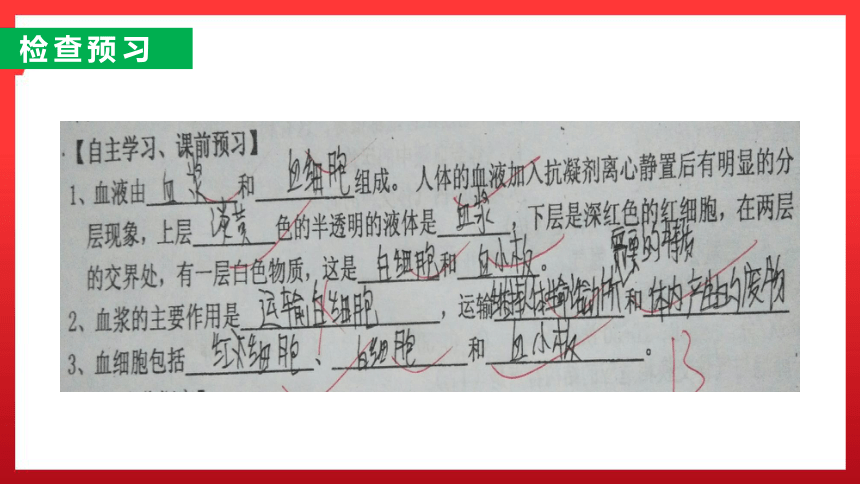 检查预习
【自主学习、课前预习】
1、血液由 血浆 和 血细胞 组成。人体的血液加入抗凝剂离心静置后有明显的分
层现象，上层 淡黄 色的半透明的液体是 血浆 ，下层是深红色的红细胞，在两层
的交界处，有一层白色物质，这是 白细胞 和 血小板 。
需要的物质
2、血浆的主要作用是 运输血细胞 ，运输 维持人体生命活动所 和 体内产生的废物
3、血细胞包括 红细胞 、 白细胞 和 血小板 。
13